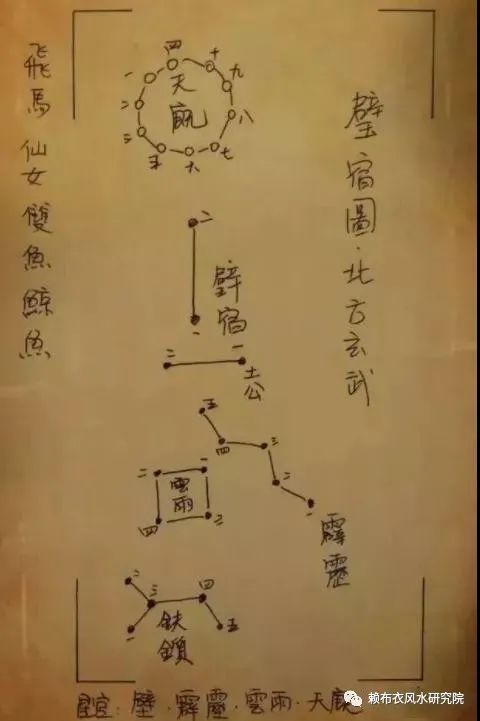 璧宿圖·北方玄武
飛馬 仙女 雙魚 鯨魚
四
十
一
九
天
二
厩
八
三
五
六
七
二
壁宿
一
二
一
土公
五
四
三
二
一
霹靂
二
一
雲雨
四
三
二
三
四
一
五
鈇鎖
星官：壁·霹靂·雲雨·天厩
赖布衣风水研究院